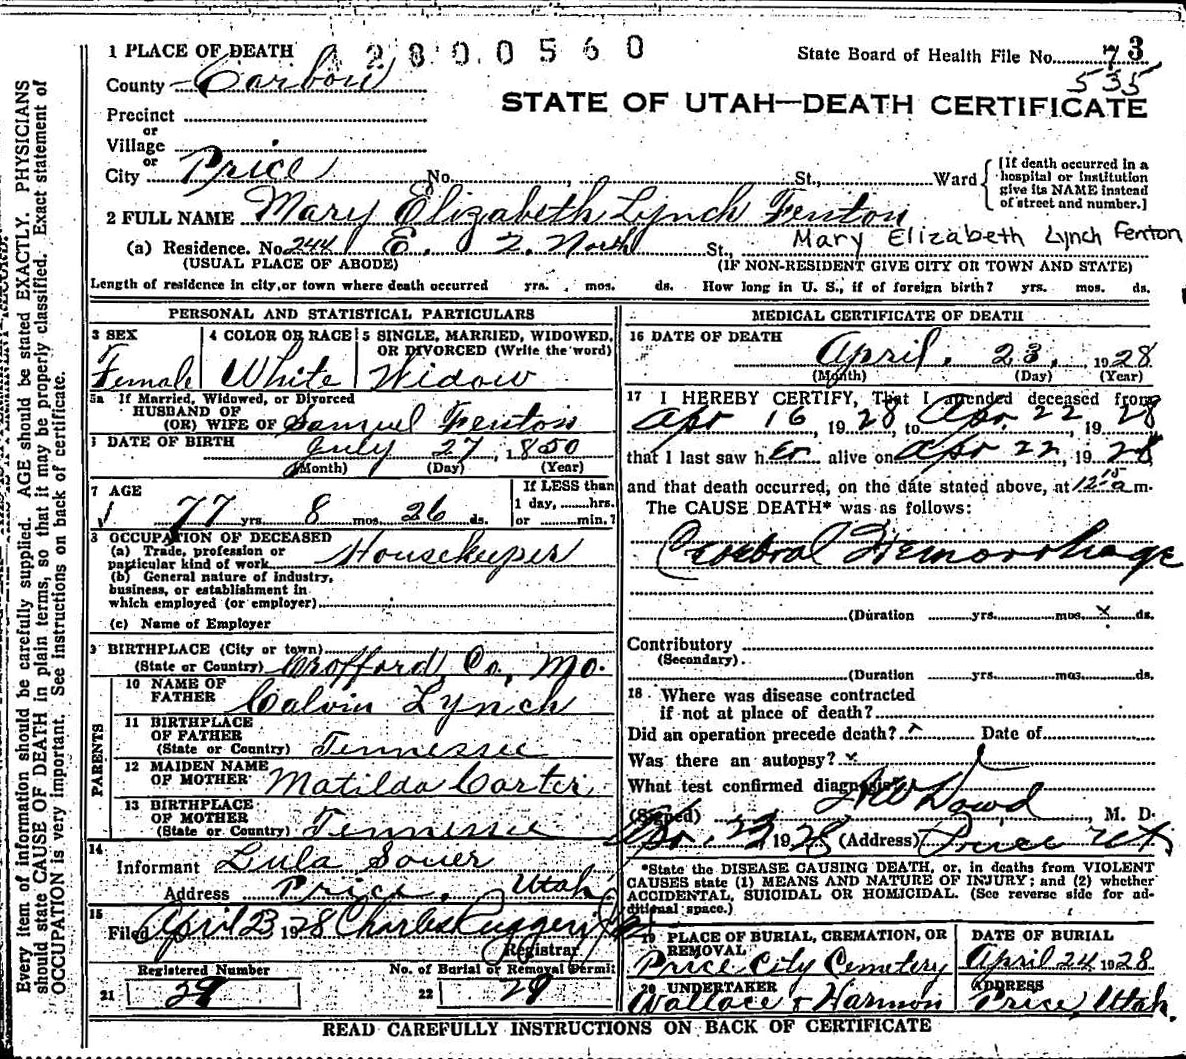 1 PLACE OF DEATH 2800560 State Board of Health File No. 73
County Carbon 535
STATE OF UTAH—DEATH CERTIFICATE
Precinct
or
Village
or
City Price No. St., Ward [If death occurred in a hospital or institution give its NAME instead of street and number.]
2 FULL NAME Mary Elizabeth Lynch Fenton
(a) Residence. No. 244 E. 2. North St., Mary Elizabeth Lynch Fenton
(USUAL PLACE OF ABODE) (IF NON-RESIDENT GIVE CITY OR TOWN AND STATE)
Length of residence in city or town where death occurred yrs. mos. ds. How long in U. S., if of foreign birth? yrs. mos. ds.
PERSONAL AND STATISTICAL PARTICULARS
3 SEX 4 COLOR OR RACE 5 SINGLE, MARRIED, WIDOWED, OR DIVORCED (Write the word)
Female White Widow
5a If Married, Widowed, or Divorced
HUSBAND OF
(OR) WIFE OF Samuel Fenton
DATE OF BIRTH July 27, 1850
(Month) (Day) (Year)
7 AGE If LESS than
77 yrs. 8 mos. 26 ds. 1 day, hrs.
or min.?
OCCUPATION OF DECEASED
(a) Trade, profession or
particular kind of work Housekeeper
(b) General nature of industry,
business, or establishment in
which employed (or employer)
(c) Name of Employer
9 BIRTHPLACE (City or town)
(State or Country) Crofford, Co., Mo.
PARENTS
10 NAME OF
FATHER Calvin Lynch
11 BIRTHPLACE
OF FATHER
(State or Country) Tennessee
12 MAIDEN NAME
OF MOTHER Matilda Carter
13 BIRTHPLACE
OF MOTHER
(State or Country) Tennessee
14
Informant Lula Souer
Address Price, Utah
15
Filed April 23 1928 Charles Ruggeri
Registrar
Registered Number No. of Burial or Removal Permit
21 29 22 29
MEDICAL CERTIFICATE OF DEATH
16 DATE OF DEATH
April 23, 1928
(Month) (Day) (Year)
17 I HEREBY CERTIFY, That I attended deceased from
Apr 16, 1928, to Apr. 22, 1928
that I last saw her alive on Apr 22, 1928,
and that death occurred, on the date stated above, at 12 15 a m.
The CAUSE DEATH* was as follows:
Cerebral Hemorrhage
(Duration yrs. mos. x ds.
Contributory
(Secondary).
(Duration yrs. mos. ds.
18 Where was disease contracted
if not at place of death?
Did an operation precede death? Date of
Was there an autopsy? x
What test confirmed diagnosis?
(Signed) Dowd, M. D.
Apr. 23 1928 (Address) Price Ut.
*State the DISEASE CAUSING DEATH, or, in deaths from VIOLENT
CAUSES state (1) MEANS AND NATURE OF INJURY; and (2) whether
ACCIDENTAL, SUICIDAL OR HOMICIDAL. (See reverse side for ad-
ditional space.)
19 PLACE OF BURIAL, CREMATION, OR REMOVAL DATE OF BURIAL
Price City Cemetery April 24 1928
20 UNDERTAKER ADDRESS
Wallace & Harmon Price, Utah.
READ CAREFULLY INSTRUCTIONS ON BACK OF CERTIFICATE
Every item of information should be carefully supplied. AGE should be stated EXACTLY. PHYSICIANS
should state CAUSE OF DEATH in plain terms, so that it may be properly classified. Exact statement of
OCCUPATION is very important. See instructions on back of certificate.